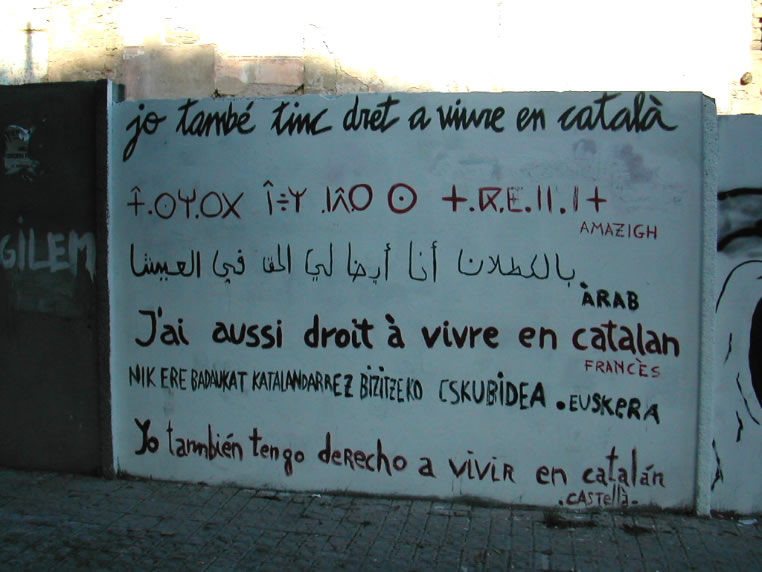 jo també tinc dret a viure en català
AMAZIGH
بالكطلان أنا أيضا لي الحق في العيشا
.ÀRAB
J'ai aussi droit à vivre en catalan
FRANCÈS
NIK ERE BADAUKAT KATALANDARREZ BIZITZEKO ESKUBIDEA .EUSKERA
Yo también tengo deRecho a vivir en catalán
.CASTellà-
GILEM